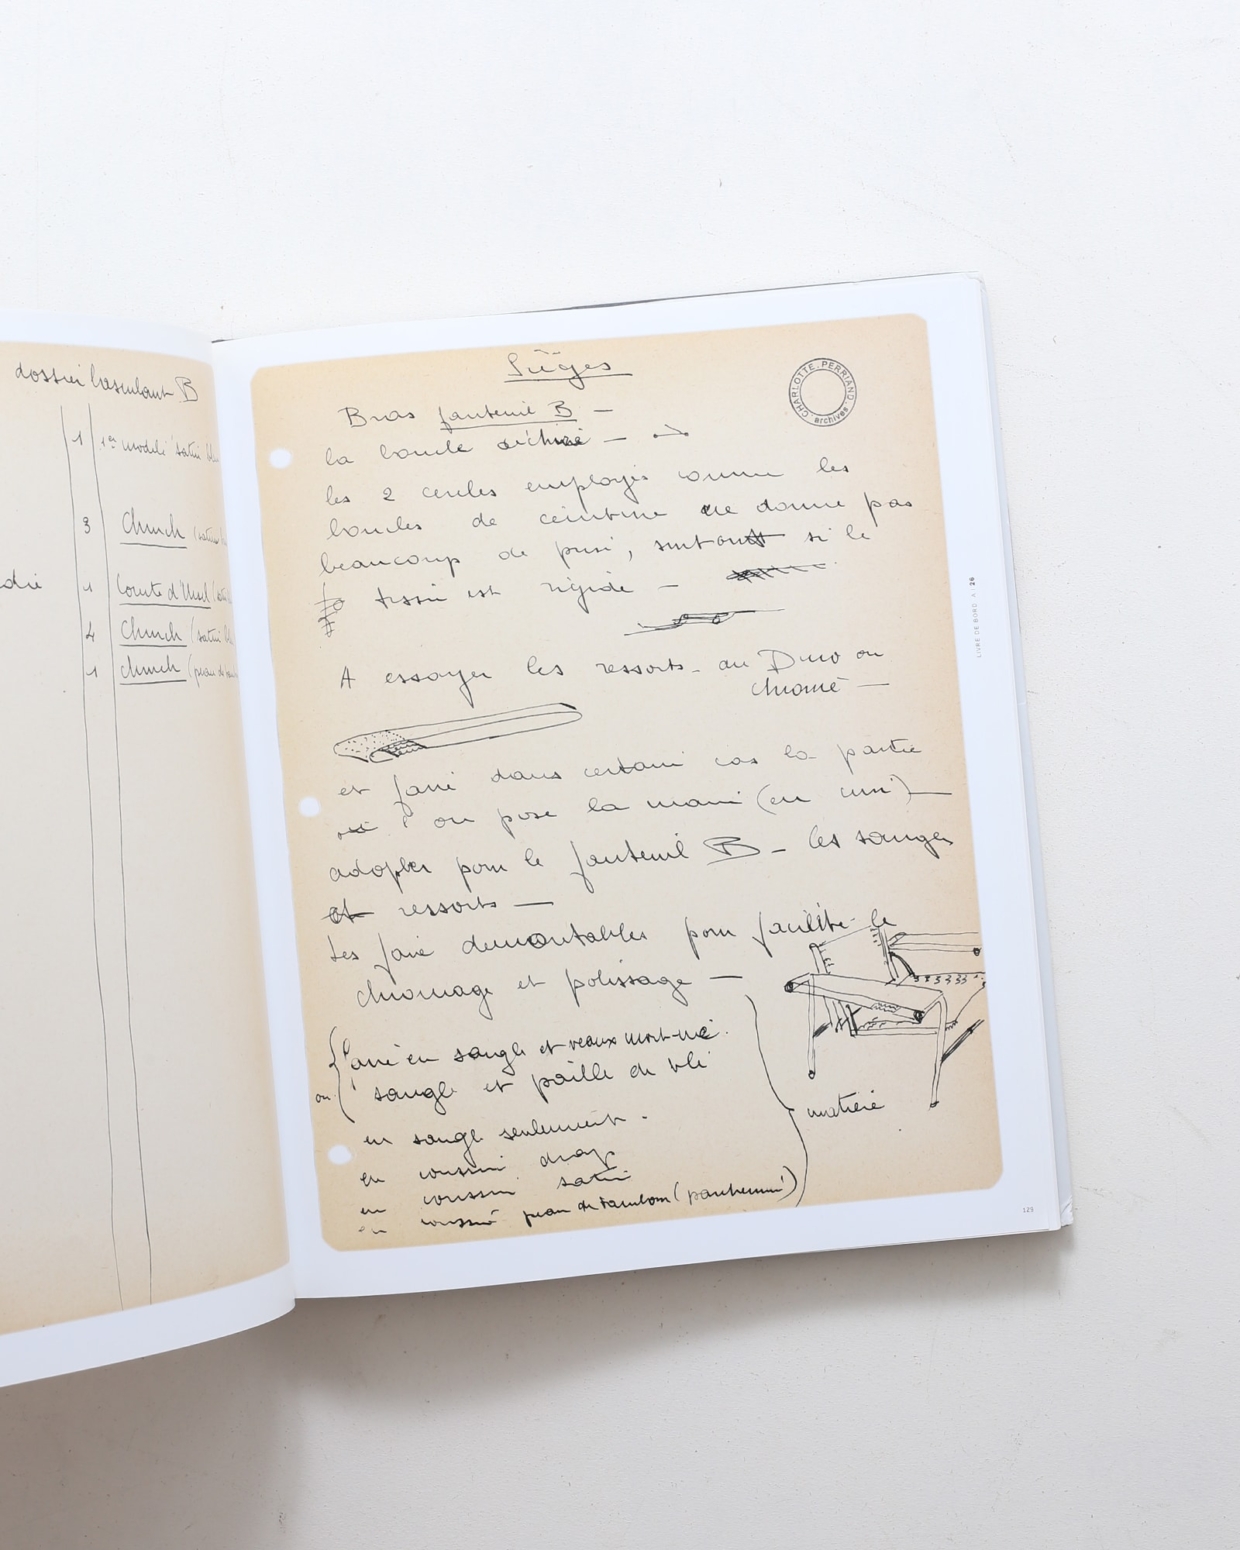 dossier basculant B
1 1er modèle satin
3 Church
1 Comte d'Ursel
4 Church (satin
1 Church (peau de
Sièges
CHARLOTTE PERRIAND archives
Bras fauteuil B –
la boucle –
les 2 cercles employés comme les
boucles de ceinture ne donne pas
beaucoup de prise, surtout si le
tissu est rigide –
A essayer les ressorts – au Duco ou
chromé –
et faire dans certain cas la partie
où on pose la main (en cuir) –
adopter pour le fauteuil B – les sangles
et ressorts –
Les faire démontables pour facilité le
chromage et polissage –
faire en sangle et veaux mort-né.
ou sangle et paille de blé
en sangle seulement.
en coussin drap
en coussin satin
en coussin peau de tambour (parchemin)
matière
LIVRE DE BORD A : 26
129